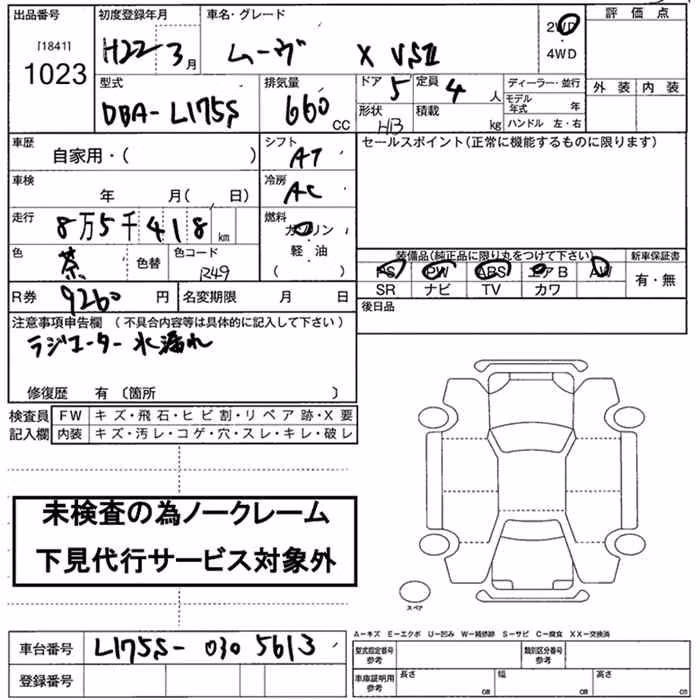 出品番号 初度登録年月 車名・グレード 評価点
[1841]
1023
H22 3月 ムーヴ X VSⅡ 2WD
・
4WD
型式 排気量 ドア 定員 ディーラー・並行 外装 内装
DBA-L175S 660 CC 5 4 人 モデル年式 年
形状 積載 ハンドル 左・右
HB kg
車歴 シフト セールスポイント(正常に機能するものに限ります)
自家用・( ) AT
車検 冷房
年 月( 日) AC
走行 燃料
8万5千418km ガソリン
色 色替 色コード 軽・油
茶 R49 ( )
装備品(純正品に限り丸をつけて下さい) 新車保証書
PS PW ABS エアB AW 有・無
SR ナビ TV カワ
R券 9260円 名変期限 月 日 後日品
注意事項申告欄 (不具合内容等は具体的に記入して下さい)
ラジエーター水漏れ
修復歴 有 〔箇所 〕
検査員 FW キズ・飛石・ヒビ割・リペア跡・X要
記入欄 内装 キズ・汚レ・コゲ・穴・スレ・キレ・破レ
未検査の為ノークレーム
下見代行サービス対象外
スペア
A-キズ E-エクボ U-凹み W-補修跡 S-サビ C-腐食 XX-交換済
車台番号 L175S-0305613
型式指定番号 参考 類別区分番号 参考
登録番号
車庫証明用 参考 長さ cm 幅 cm 高さ cm